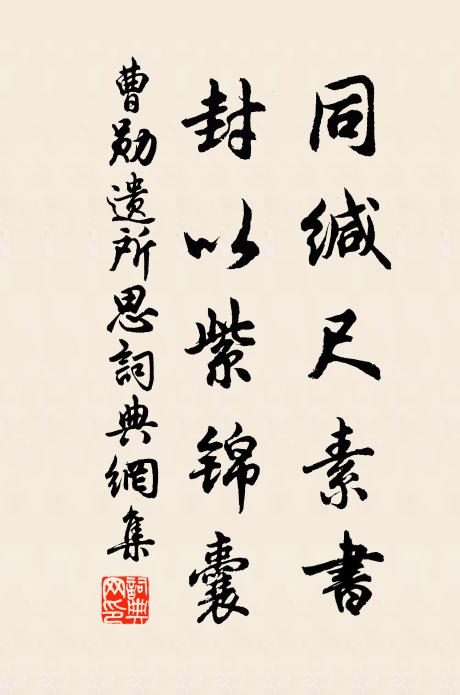 同缄尺素書
封以紫锦囊
曹勛遺所思詞典網集
詞典网印